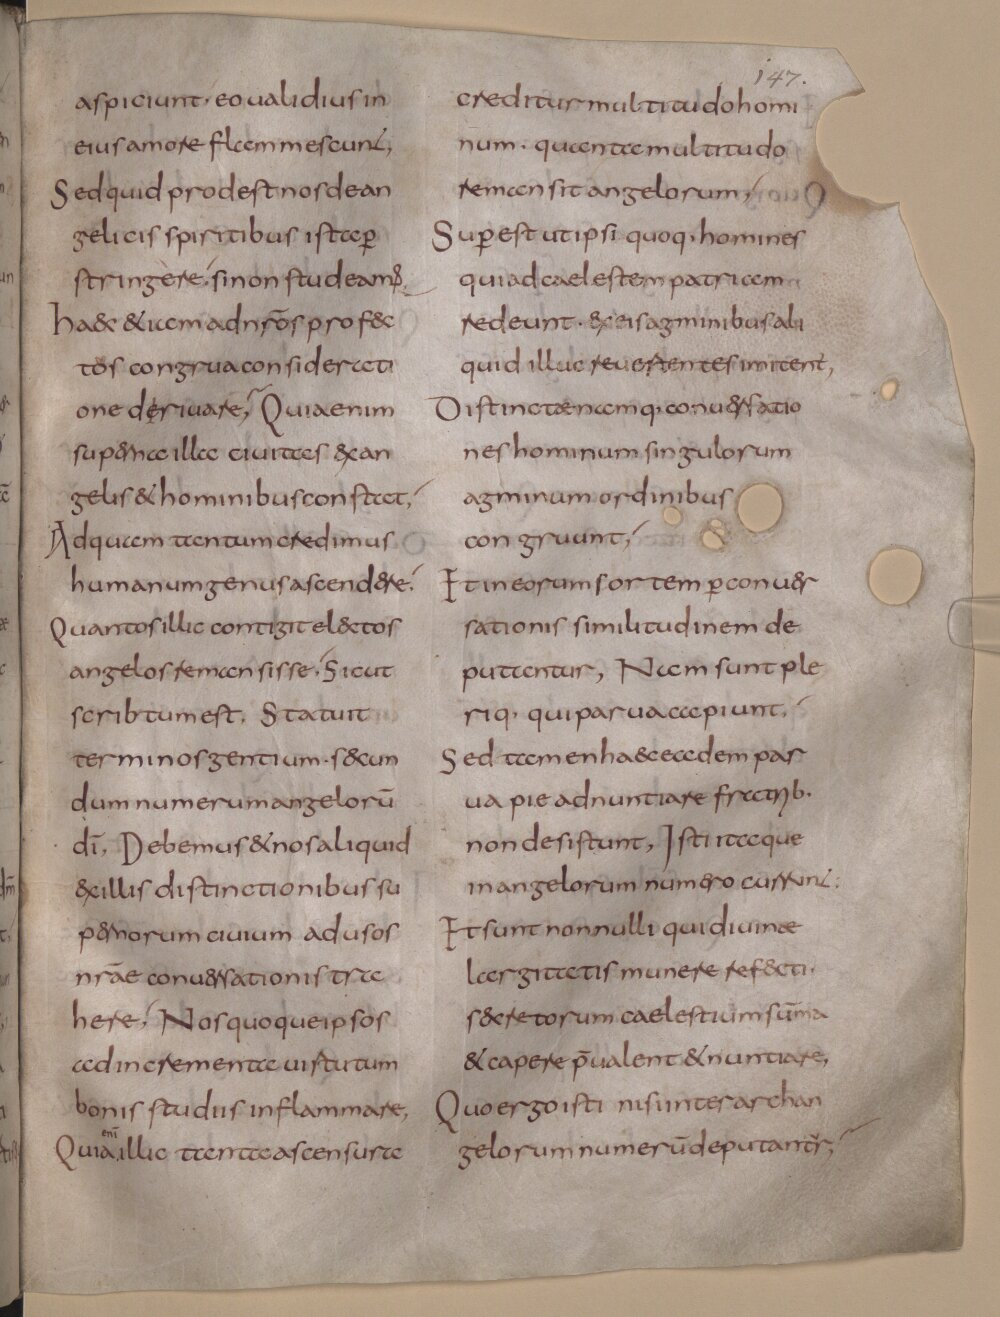 147.
aspiciunt· eo ualidius in
eius amore flammescunt,
Sed quid prodest nos de an
gelicis spiritibus ista p̲
stringere, si non studeamꝰ
haec & iam ad nr̄os profec
tos congrua considerati
one deriuare, Quia enim
superna illa ciuitas ex an
gelis & hominibus constat,
Ad quam tantum credimus
humanum genus ascendere,
Quantos illic contigit electos
angelos remansisse, Sicut
scribtum est, Statuit
terminos gentium· secun
dum numerum angelorū
dī, Debemus & nos aliquid
ex illis distinctionibus su
pernorum ciuium ad usos
nrāe conuersationis tra
here, Nos quoque ipsos
ad incrementa uirtutum
bonis studiis inflammare,
Quia enī illic tanta ascensura
creditur multitudo homi
num· quanta multitudo
remansit angelorum,
Sup̲est ut ipsi quoq· homines
qui ad caelestem patriam
redeunt· ex eis agminibus ali
quid illuc reuertentes imitent̄,
Distinctae namq· conuersatio
nes hominum singulorum
agminum ordinibus
congruunt,
Et in eorum sortem p̲ conuer
sationis similitudinem de
putantur, Nam sunt ple
riq· qui parua accipiunt,
Sed tamen haec eadem par
ua pie adnuntiare fratrib·
non desistunt, Isti itaque
in angelorum numero currunt:
Et sunt nonnulli qui diuinae
largitatis munere refecti·
secretorum caelestium sūma
& capere p̄ualent & nuntiare,
Quo ergo isti nisi inter archan
gelorum numerū deputantr̄,